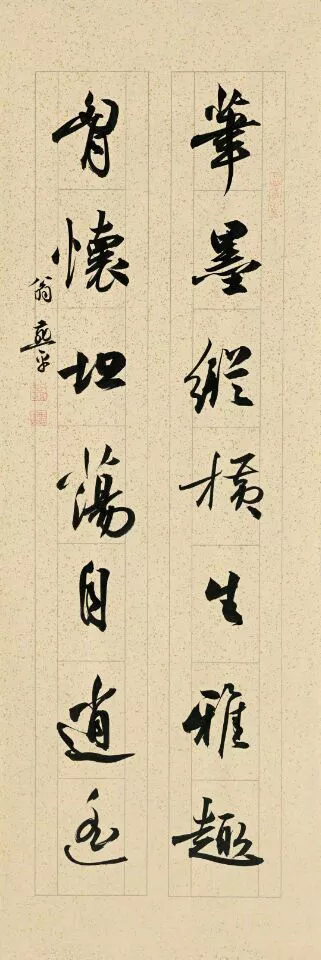 筆墨縱橫生雅趣
胷懷坦蕩自逍遙
翁 平